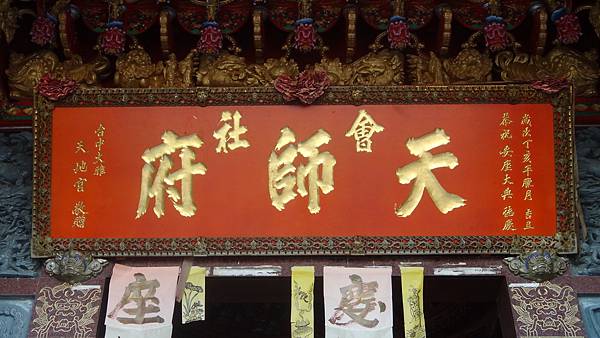 歲次丁亥年臘月 吉旦
恭祝 安座大典 誌慶
天師府
會社
台中大雅
天地宮 敬贈
安座